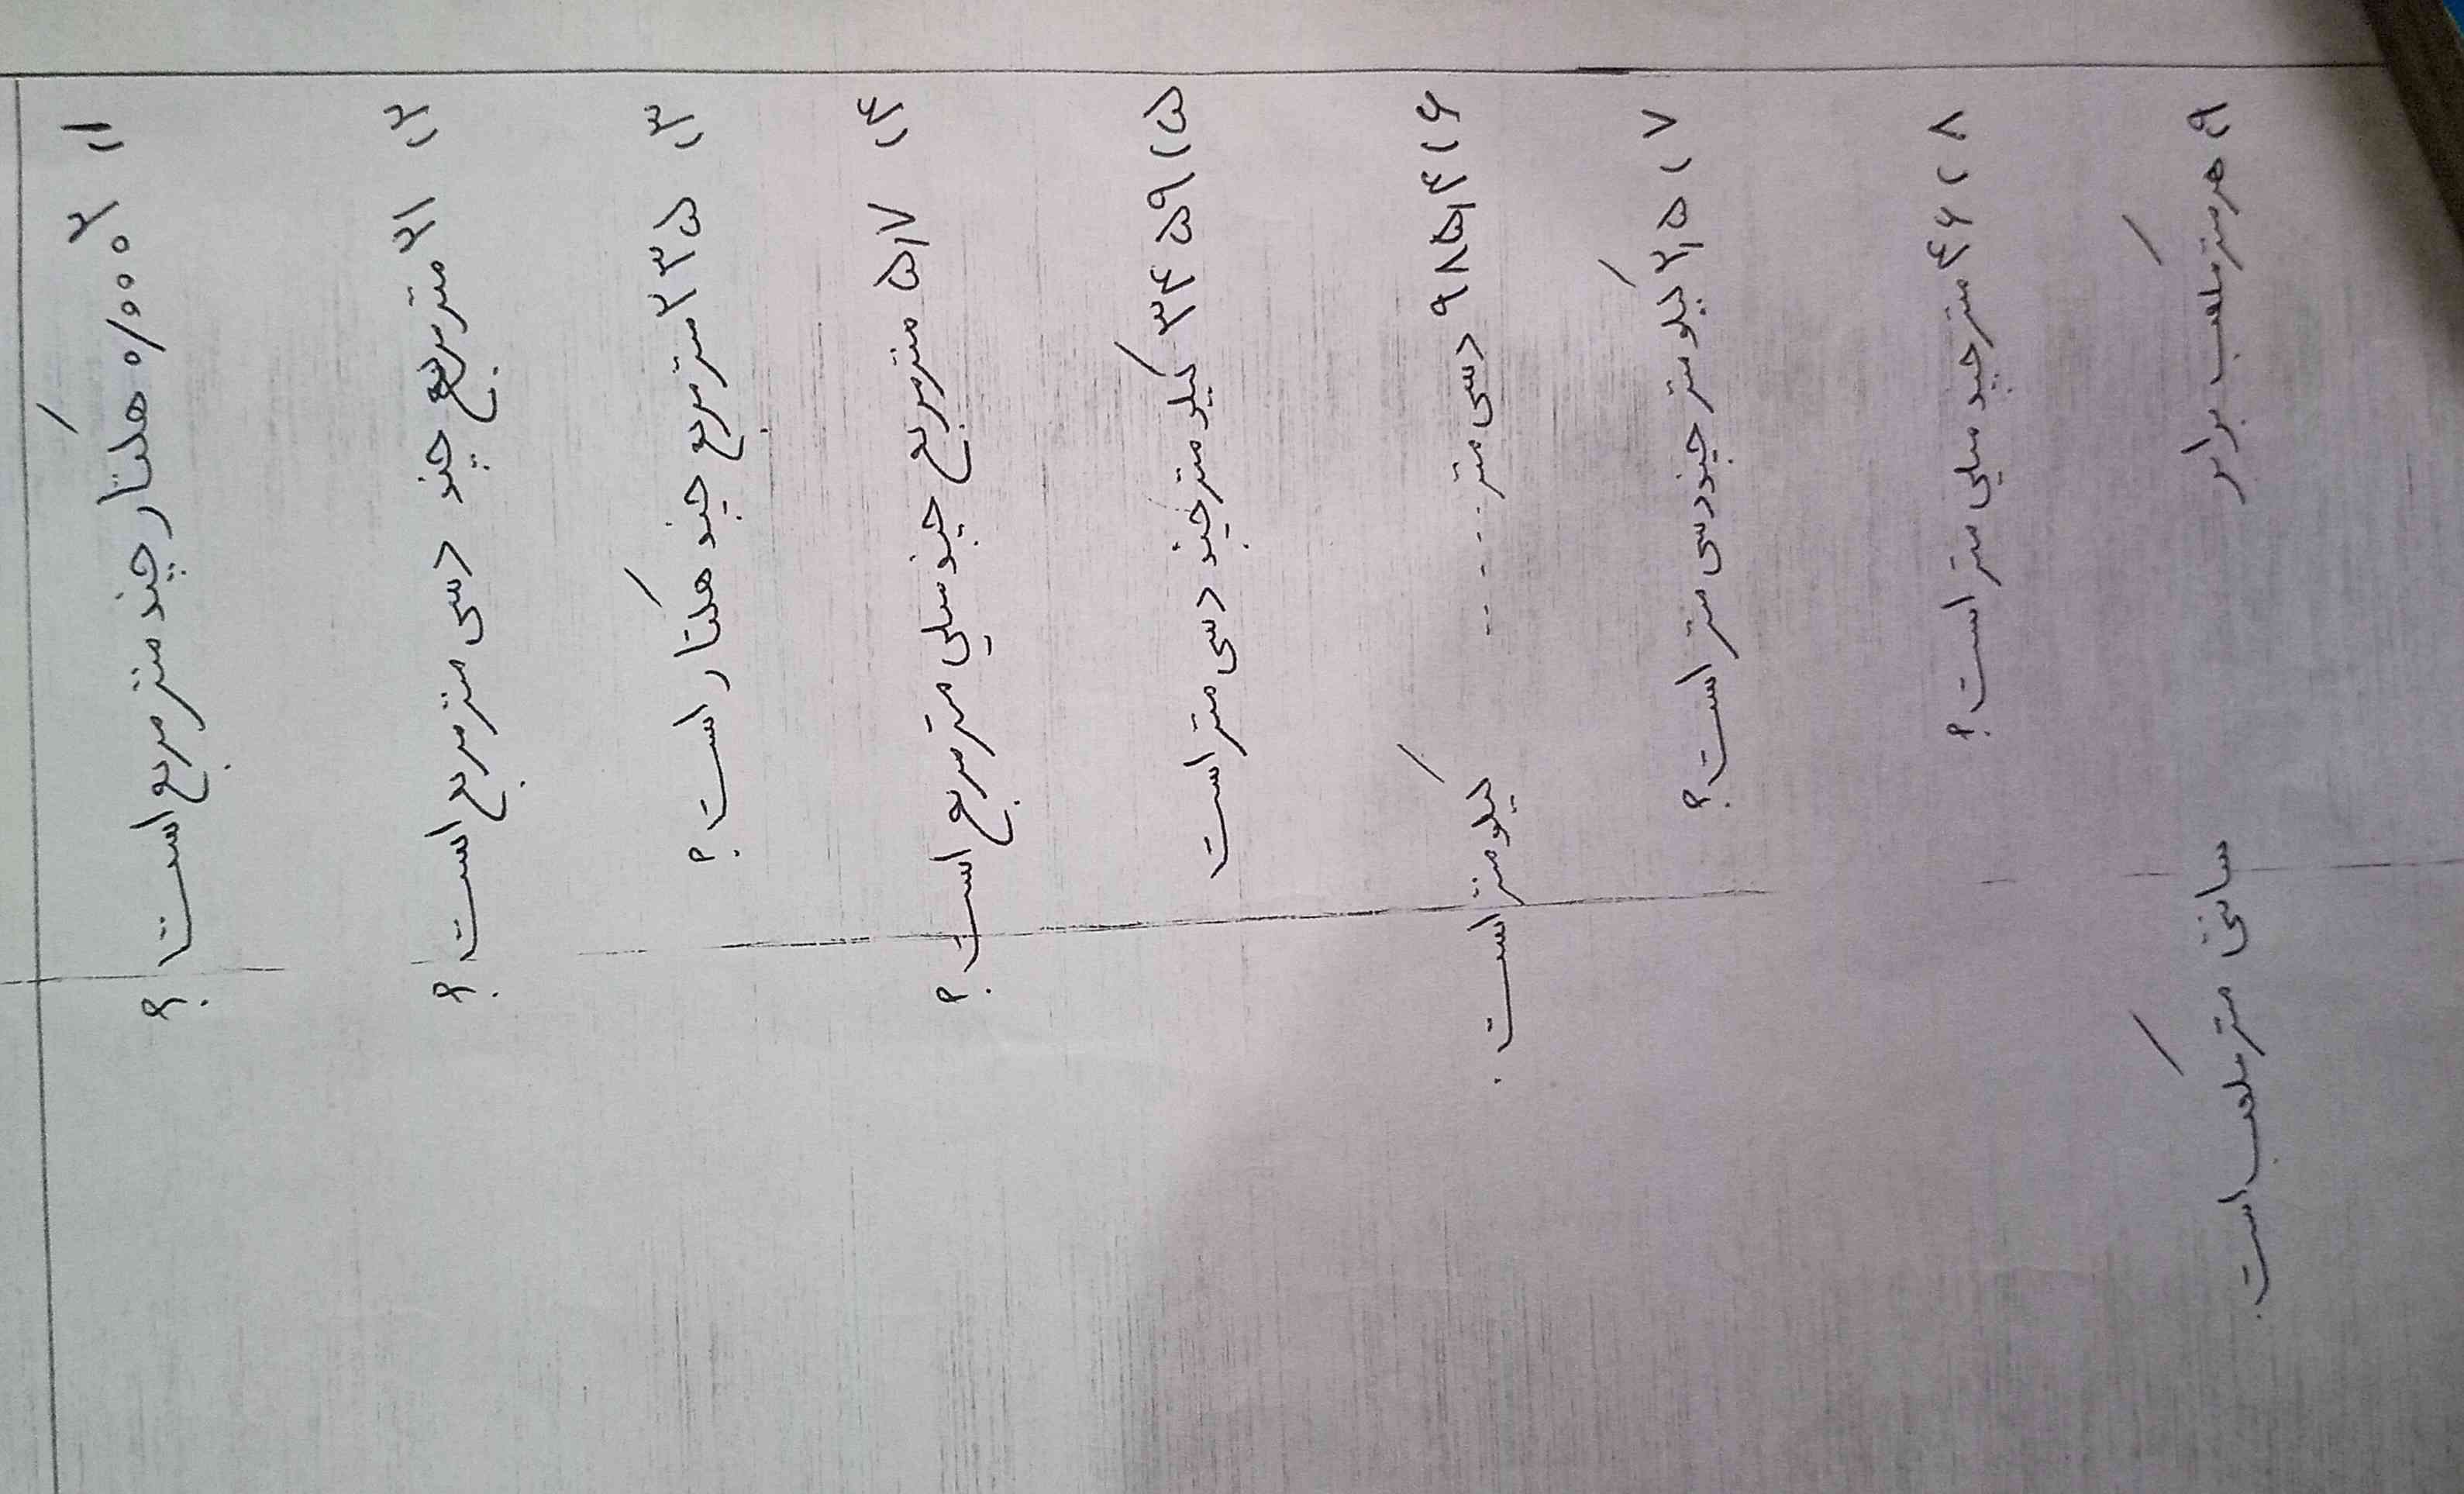 ۱) ۰/۰۰۰۲ هکتار چند متر مربع است ؟
۲) ۲۱ متر مربع چند دسی متر مربع است ؟
۳) ۲۳۵ متر مربع چند هکتار است ؟
۴) ۵٫۷ متر مربع چند میلی متر مربع است ؟
۵) ۳۴۵۹ کیلو متر چند دسی متر است
۶) ۹۸۵٫۴ دسی متر ..... کیلو متر است .
۷) ۲٫۵ کیلو متر چند دسی متر است ؟
۸) ۴۶ متر چند میلی متر است ؟
۹) هر متر مکعب برابر سانتی متر مکعب است .